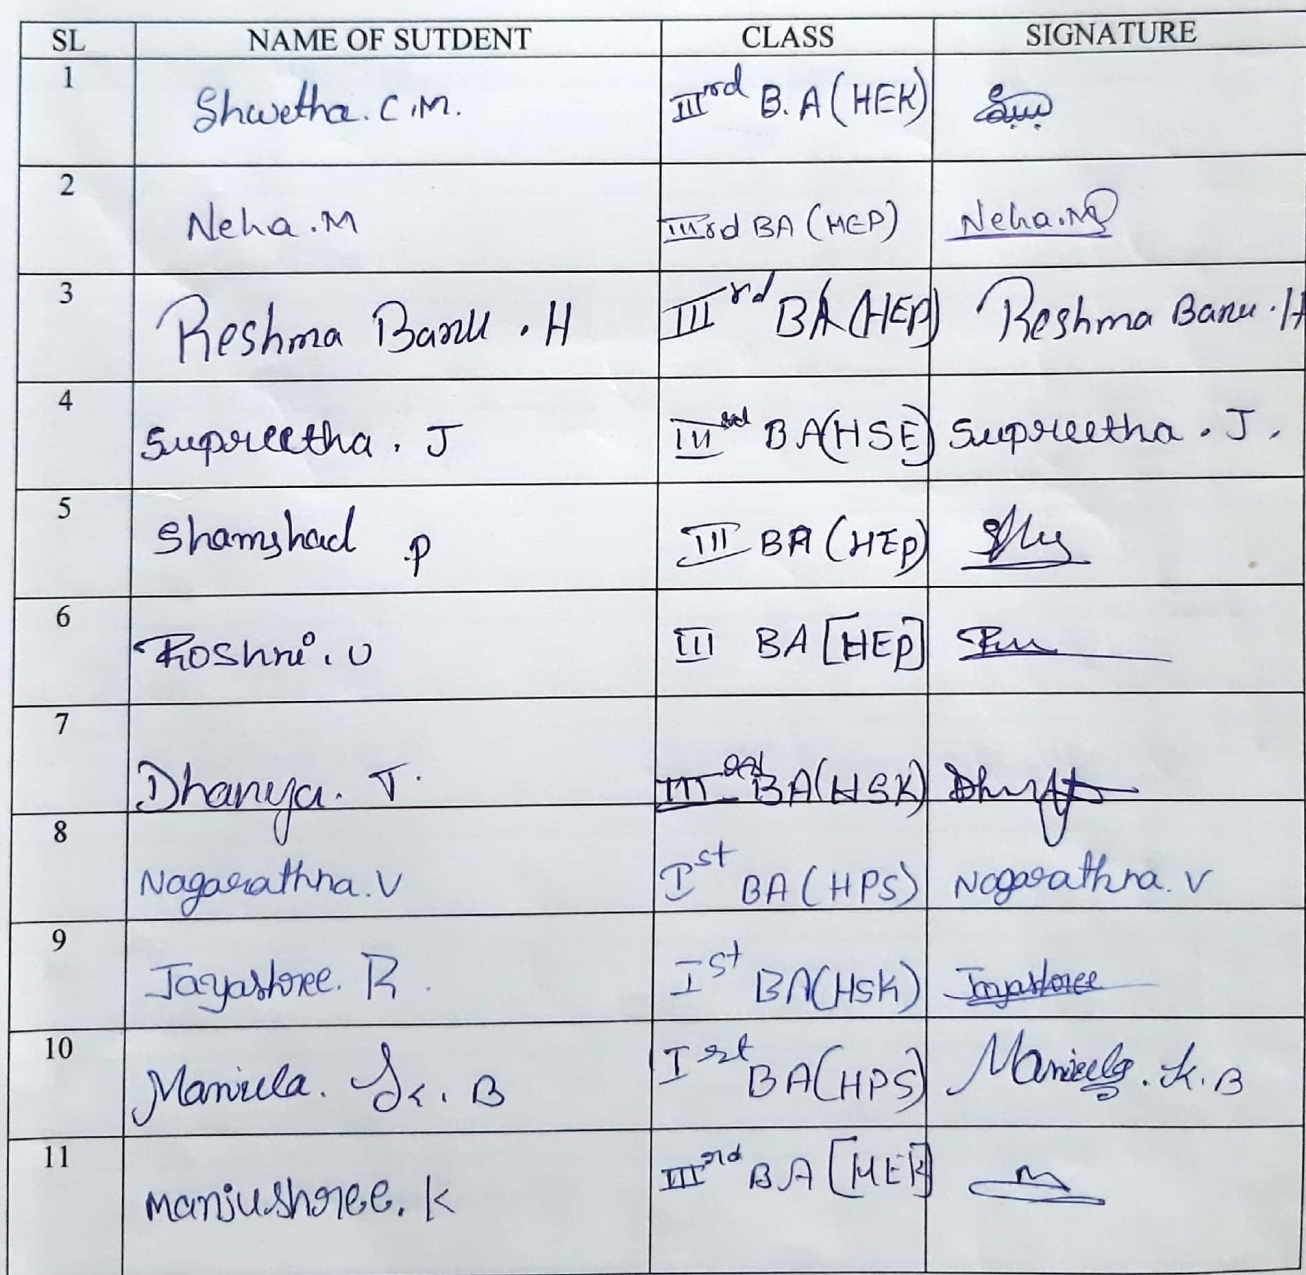 SL NAME OF SUTDENT CLASS SIGNATURE
1 Shwetha. C.M. IIIrd B.A (HEK)
2 Neha.M IIIrd BA (HEP) Neha.M
3 Reshma Banu.H IIIrd BA (HEP) Reshma Banu.H
4 Supreetha. J IIIrd BA(HSE) Supreetha. J.
5 Shamshad .P III BA (HEP)
6 Roshni. U III BA [HEP]
7 Dhanya. T. IIIrd BA(HSK)
8 Nagarathna.V Ist BA (HPS) Nagarathna. V
9 Jayashree. R. Ist BA(HSK) Jayashree
10 K. B Ist BA(HPS) K. B
11 Manjushree. K IIIrd BA [HEK]